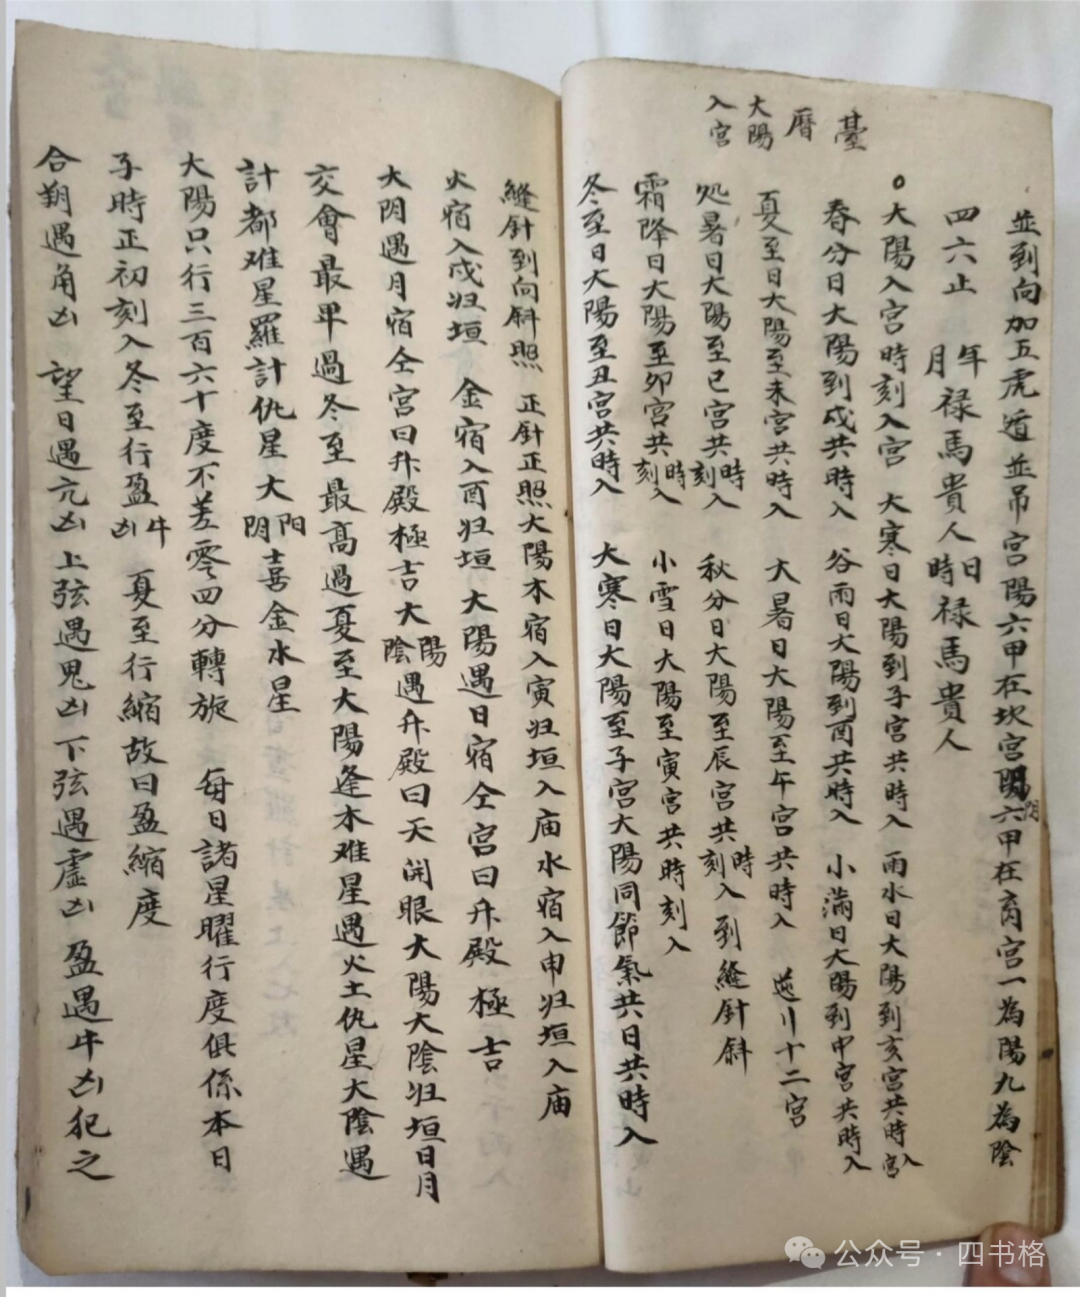 臺曆
大陽入宮
並到向加五虎遁並吊宮陽六甲在坎宮陰六甲在离宮一為陽九為陰
四六止 年月禄馬貴人日時禄馬貴人
○大陽入宮時刻入宮 大寒日大陽到子宮共時入 雨水日大陽到亥宮共時入宮
春分日大陽到戍共時入 谷雨日大陽到酉共時入 小滿日大陽到申宮共時入
夏至日大陽至未宮共時入 大暑日大陽至午宮共時入 逆川十二宮
処暑日大陽至已宮共時刻入 秋分日大陽至辰宮共時刻入 到縫針斜
霜降日大陽至卯宮共時刻入 小雪日大陽至寅宮共時刻入
冬至日大陽至丑宮共時入 大寒日大陽至子宮大陽同節氣共日共時入
縫針到向斜照 正針正照大陽木宿入寅归垣入庙水宿入申归垣入庙
火宿入戍归垣 金宿入酉归垣大陽遇日宿仝宮曰升殿極吉
大阴遇月宿仝宮曰升殿極吉大陽陰遇升殿曰天開眼大陽大陰归垣日月
交會最卑過冬至最高過夏至大陽逢木难星遇火土仇星大陰遇
計都难星羅計仇星大阳阴喜金水星
大陽只行三百六十度不差零四分轉旋 每日諸星曜行度俱係本日
子時正初刻入冬至行盈牛凶 夏至行縮故曰盈縮度
合朔遇角凶 望日遇亢凶上弦遇鬼凶下弦遇虚凶 盈遇牛凶犯之
公众号·四书格